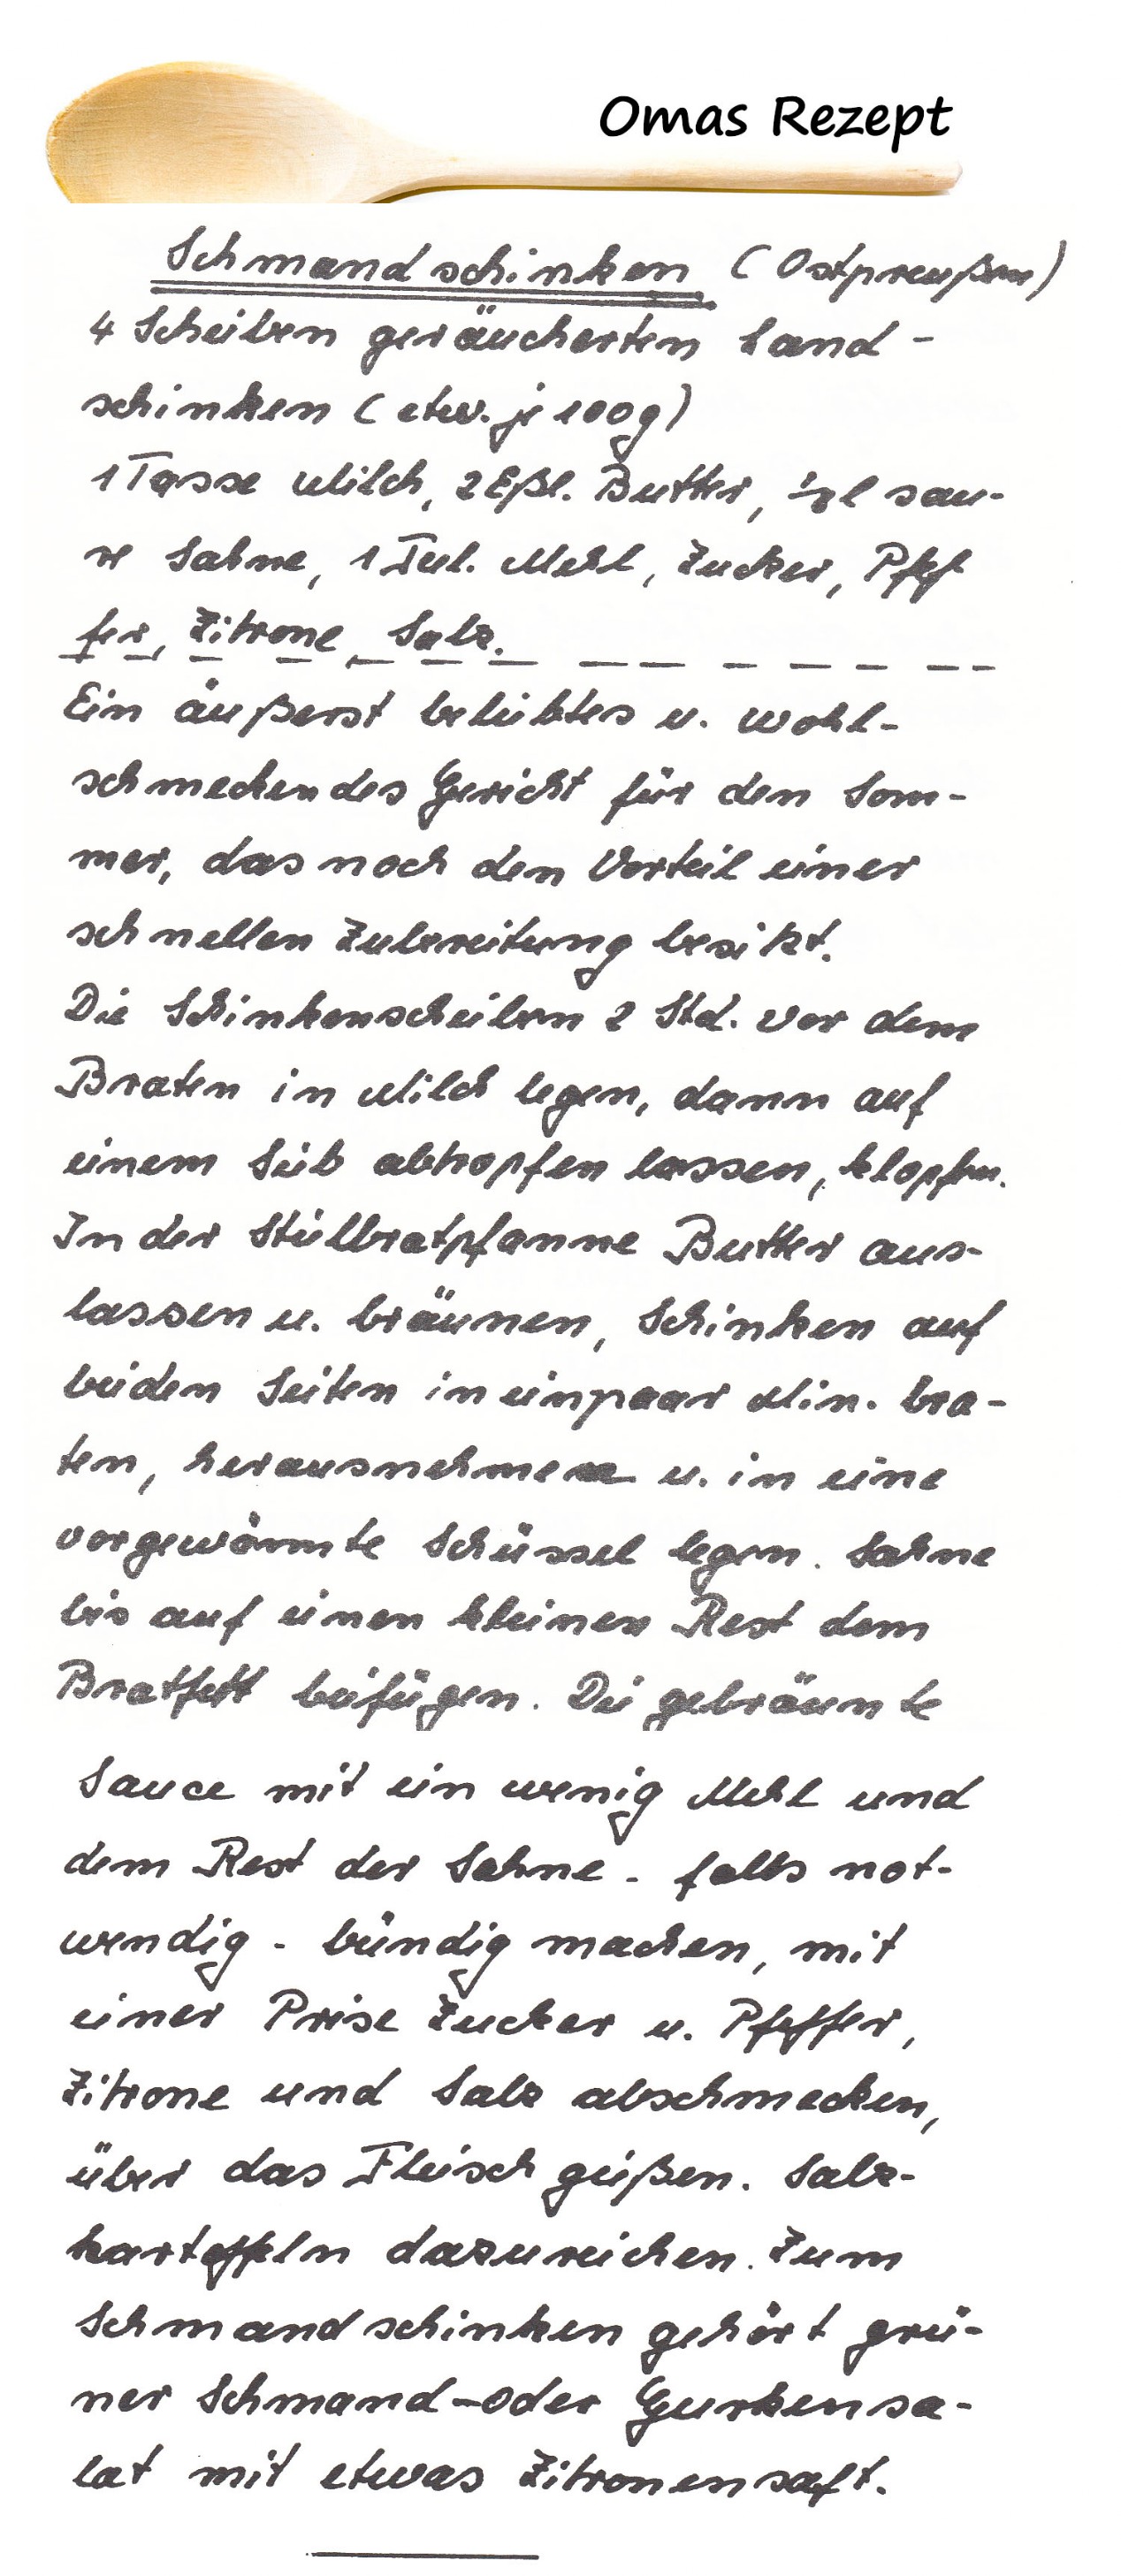 Omas Rezept
Schmandschinken (Ostpreußen)
4 Scheiben geräucherten Land-
schinken (etw. je 100g)
1 Tasse Milch, 2 Eßl. Butter, 1/8 l sau-
re Sahne, 1 Teel. Mehl, Zucker, Pfef
fer, Zitrone, Salz.
Ein äußerst beliebtes u. wohl-
schmeckendes Gericht für den Som-
mer, das noch den Vorteil einer
schnellen Zubereitung besitzt.
Die Schinkenscheiben 2 Std. vor dem
Braten in Milch legen, dann auf
einem Sieb abtropfen lassen, klopfen.
In der Stielbratpfanne Butter aus-
lassen u. bräunen, Schinken auf
beiden Seiten in ein paar Min. bra-
ten, herausnehmen u. in eine
vorgewärmte Schüssel legen. Sahne
bis auf einen kleinen Rest dem
Bratfett beifügen. Die gebräunte
Sauce mit ein wenig Mehl und
dem Rest der Sahne - falls not-
wendig - bündig machen, mit
einer Prise Zucker u. Pfeffer,
Zitrone und Salz abschmecken,
über das Fleisch gießen. Salz-
kartoffeln dazureichen. Zum
Schmandschinken gehört grü-
ner Schmand-oder Gurkensa-
lat mit etwas Zitronensaft.